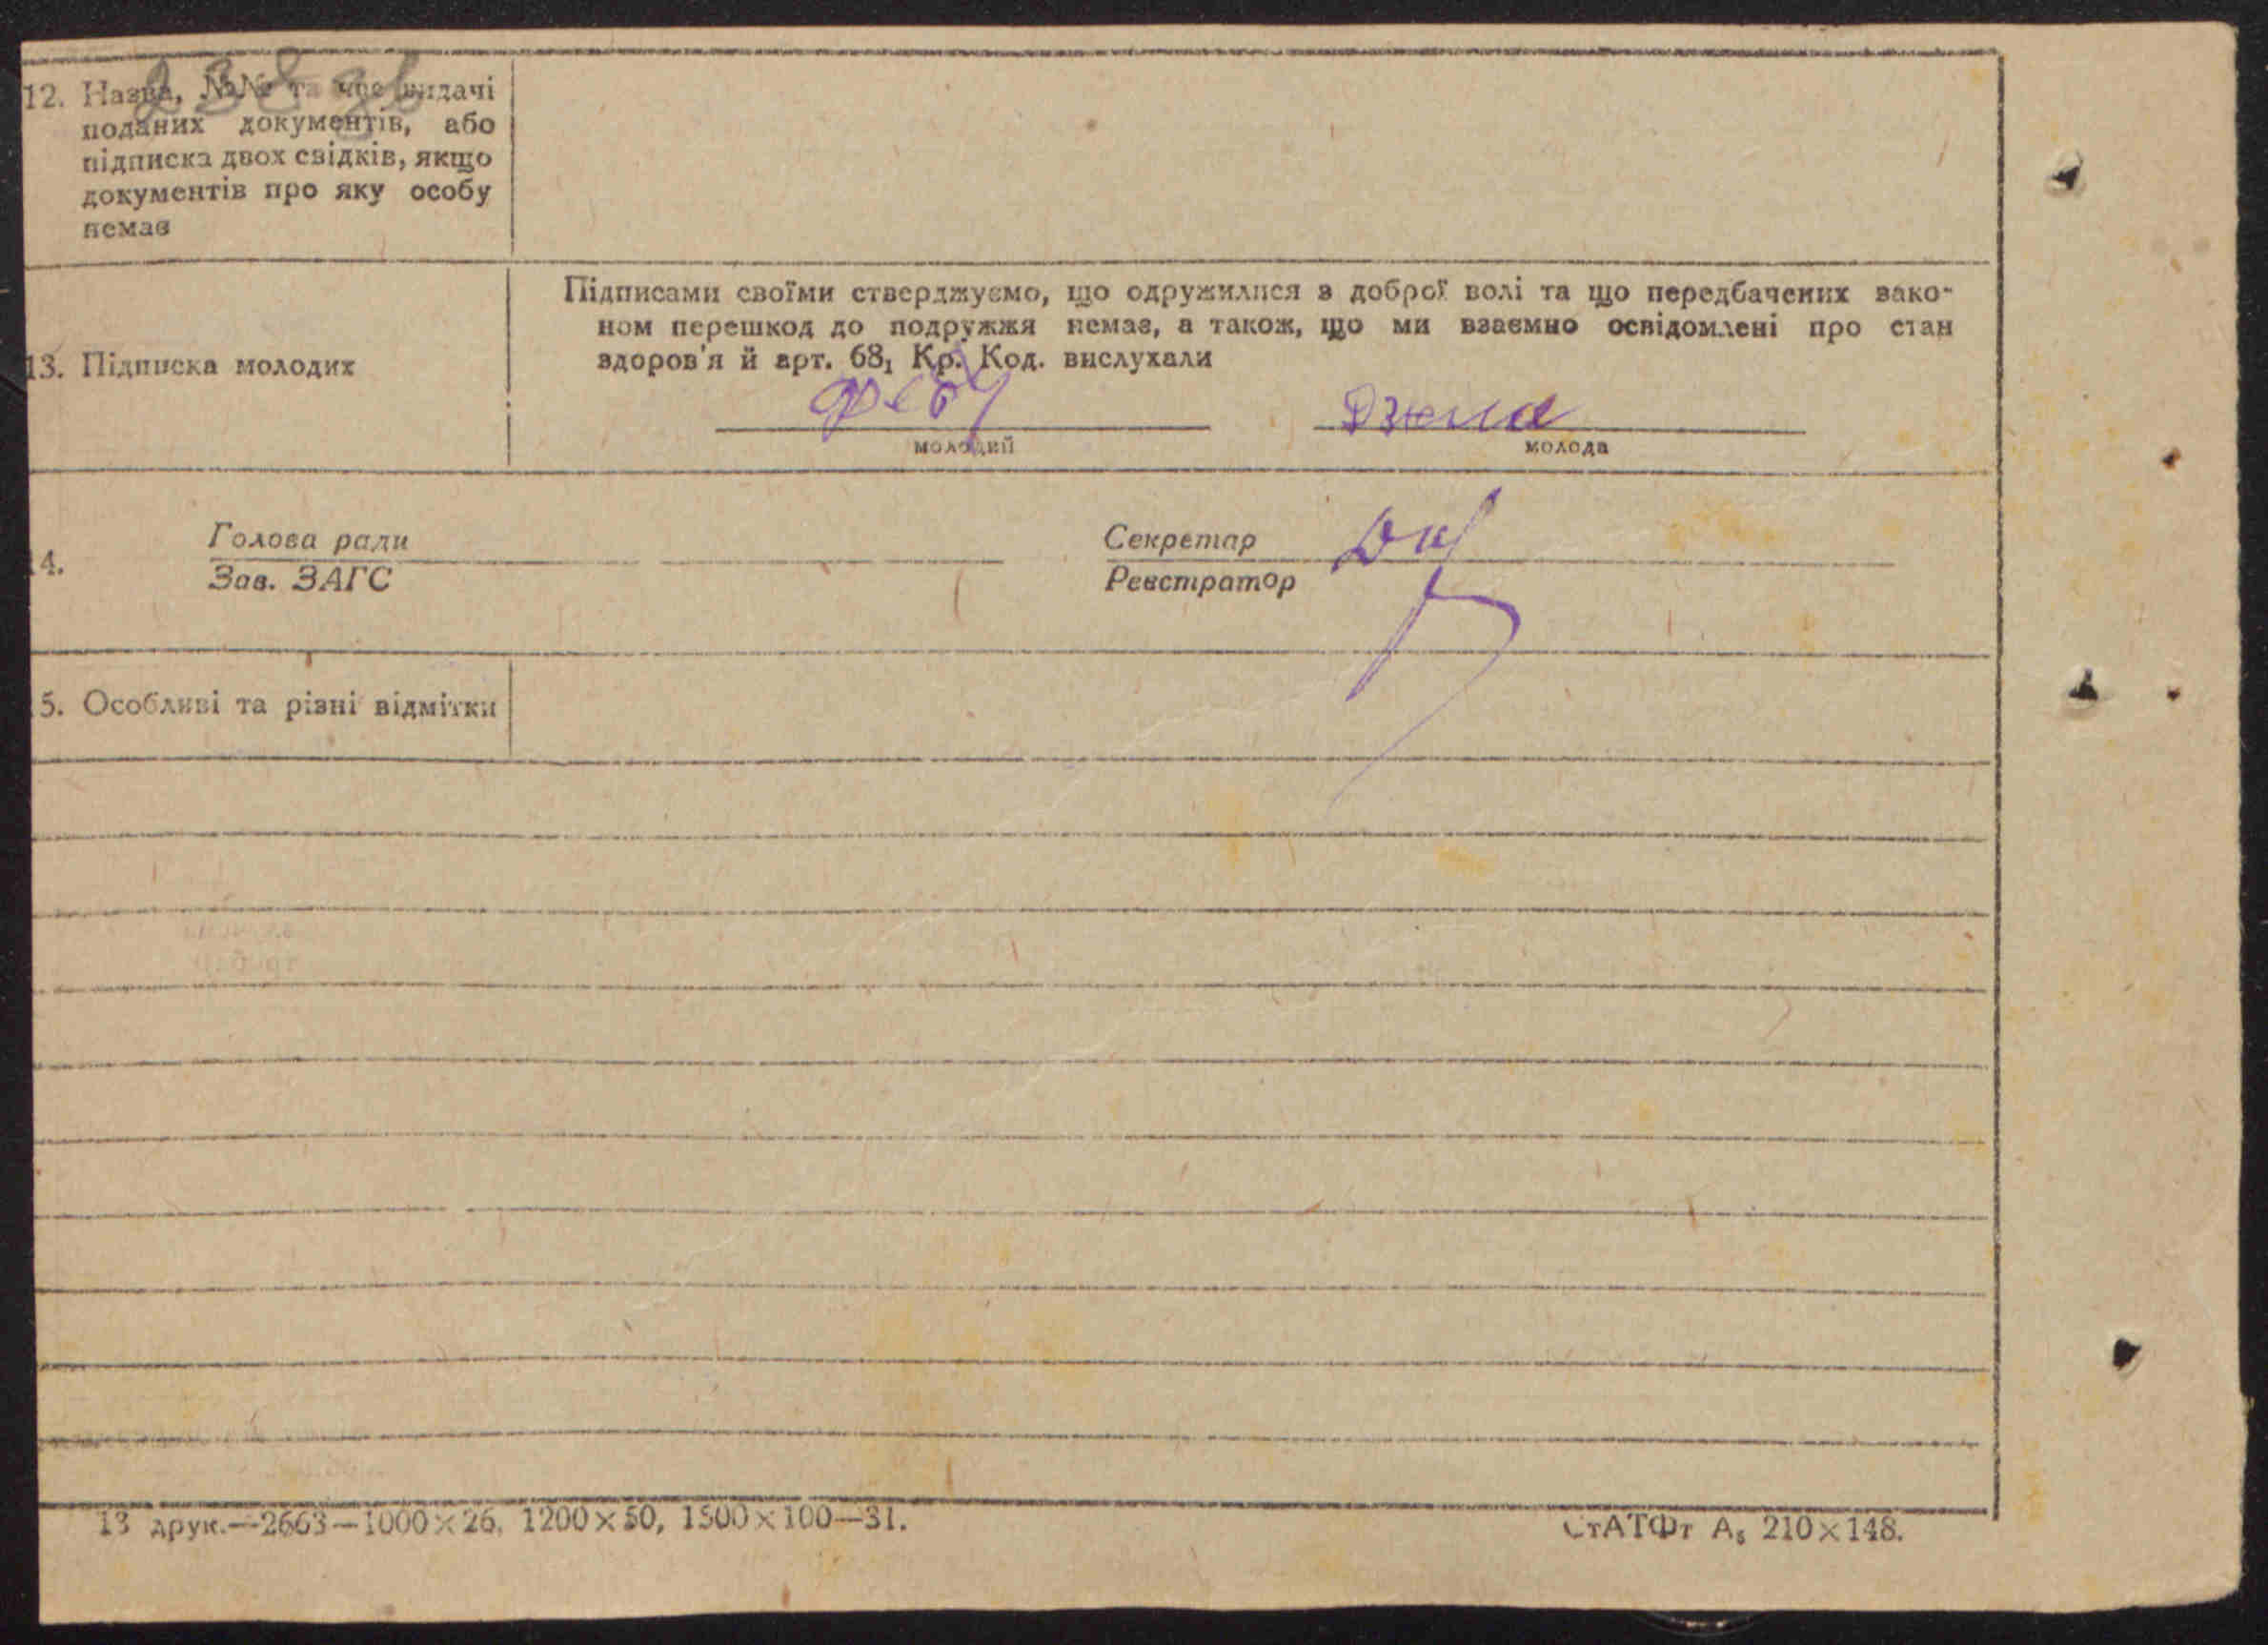 12. Назва, №№ та час видачі
поданих документів, або
підписка двох свідків, якщо
документів про яку особу
немає
13. Підписка молодих
Підписами своїми стверджуємо, що одружилися з доброї волі та що передбачених зако-
ном перешкод до подружжя немає, а також, що ми взаємно освідомлені про стан
здоров'я й арт. 68₁ Кр. Код. вислухали
молодий
молода
4.
Голова ради
Зав. ЗАГС
Секретар
Реєстратор
5. Особливі та різні відмітки
13 друк.—2663—1000×26, 1200×50, 1500×100—31.
СтАТФт А₅ 210×148.